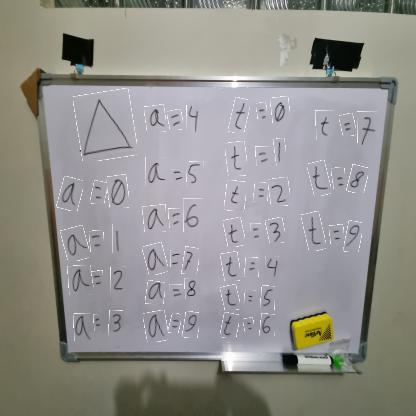 a = 0
a = 1
a = 2
a = 3
a = 4
a = 5
a = 6
a = 7
a = 8
a = 9
t = 0
t = 1
t = 2
t = 3
t = 4
t = 5
t = 6
t = 7
t = 8
t = 9